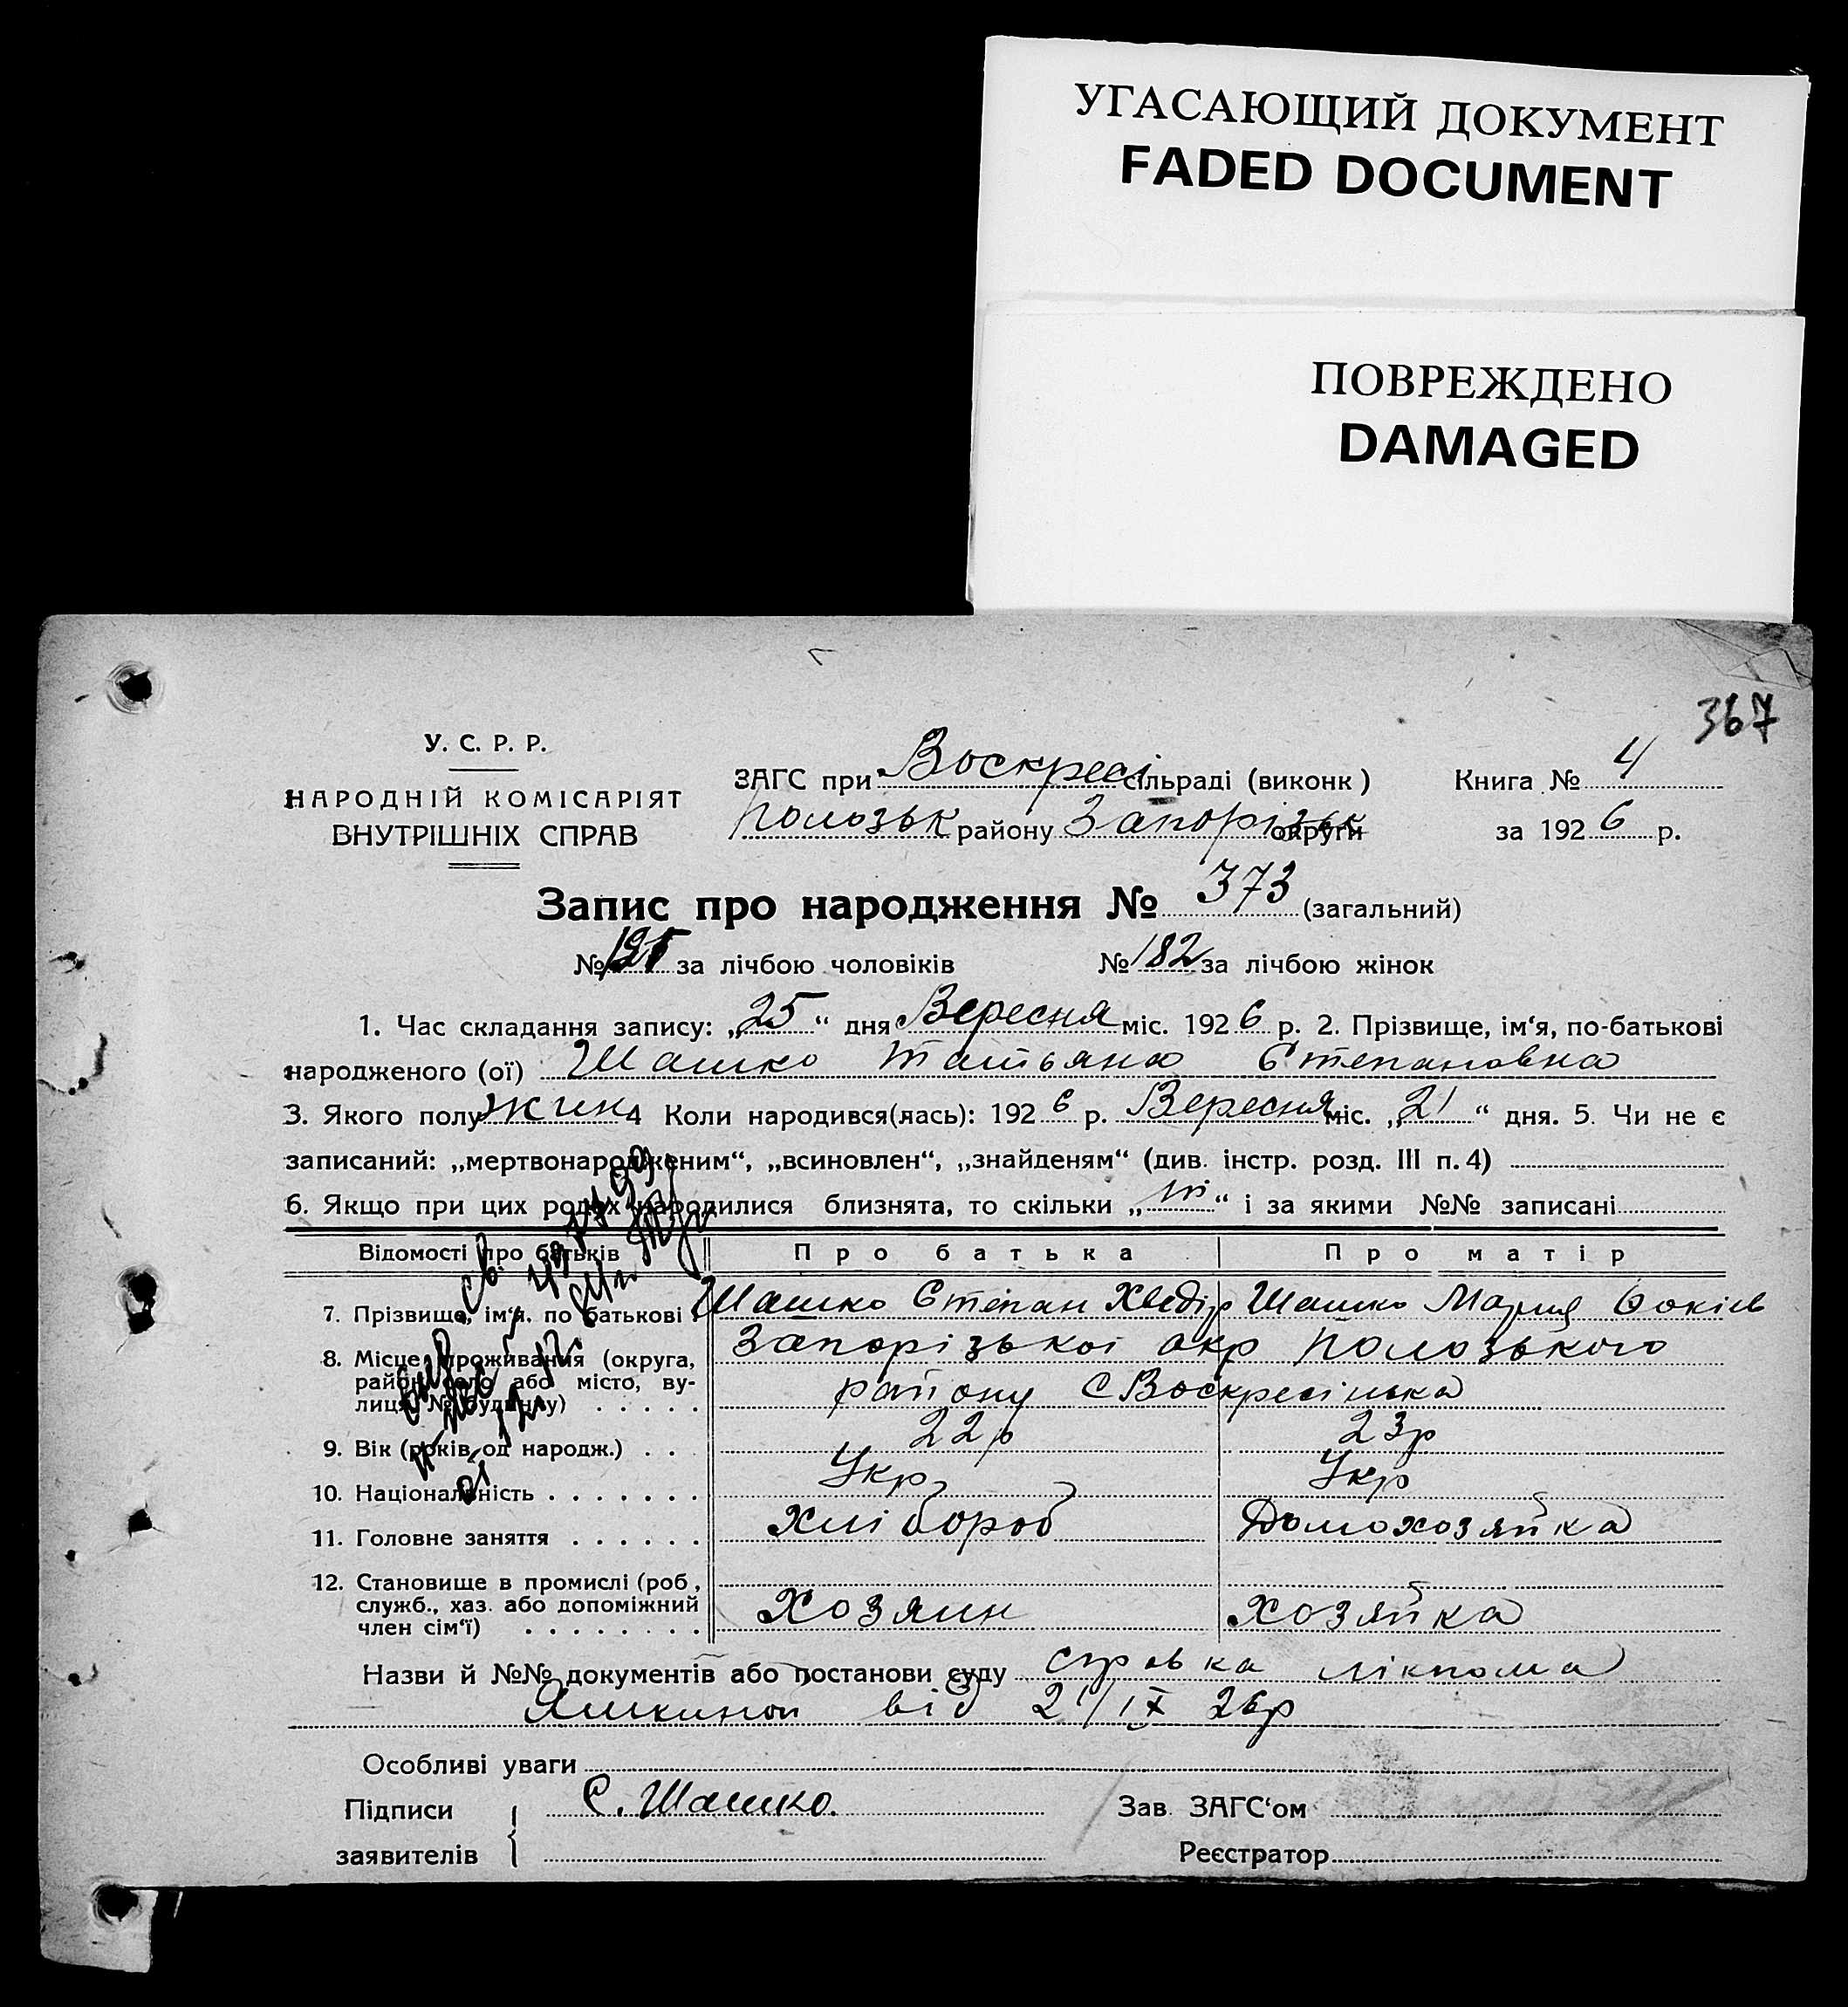 УГАСАЮЩИЙ ДОКУМЕНТ
FADED DOCUMENT
ПОВРЕЖДЕНО
DAMAGED
367
У. С. Р. Р.
НАРОДНІЙ КОМІСАРІЯТ
ВНУТРІШНІХ СПРАВ
ЗАГС при Воскресі сільраді (виконк) Книга № 4
Полозьк району Запорізьк округи за 1926 р.
Запис про народження № 373 (загальний)
№ за лічбою чоловіків № 182 за лічбою жінок
1. Час складання запису: „25“ дня Вересня міс. 1926 р. 2. Прізвище, ім‘я, по-батькові
народженого (ої) Шашко Татьяна Степановна
3. Якого полу жин 4 Коли народився(лась): 1926 р. Вересня міс. „21“ дня. 5. Чи не є
записаний: „мертвонародженим“, „всиновлен“, „знайденям“ (див. інстр. розд. III п. 4)
6. Якщо при цих родах народилися близнята, то скільки „ “ і за якими №№ записані
Відомості про батьків Про батька Про матір
7. Прізвище, ім‘я, по батькові Шашко Степан Хведір Шашко Мария
8. Місце проживання (округа, Запорізькоі окр Полозького
район, село або місто, ву- району С Воскресінька
лиця, № будинку)
9. Вік (років од народж.) 22р 23р
10. Національність Укр Укр
11. Головне заняття Хлібороб Домохозяйка
12. Становище в промислі (роб,
служб., хаз. або допоміжний Хозяин Хозяйка
член сім‘ї)
Назви й №№ документів або постанови суду справка лікпома
Яшкиной від 21/IX 26р
Особливі уваги
Підписи С. Шашко. Зав. ЗАГС‘ом
заявителів Реєстратор